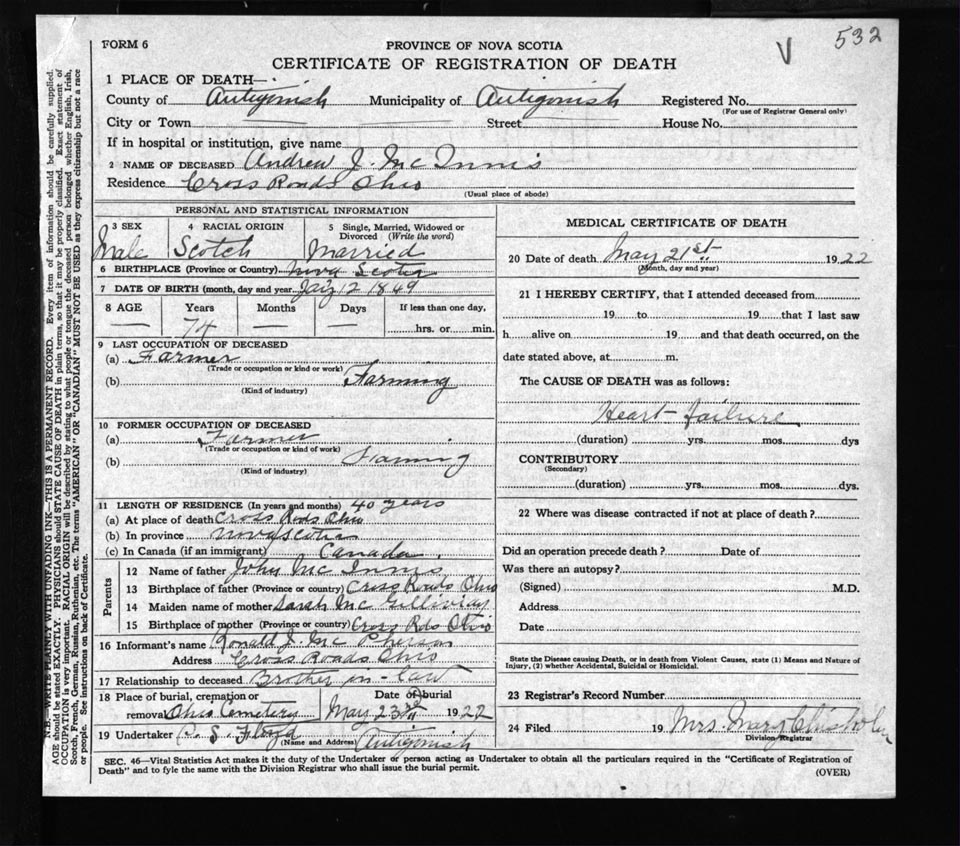 532
V
FORM 6
PROVINCE OF NOVA SCOTIA
CERTIFICATE OF REGISTRATION OF DEATH
1 PLACE OF DEATH—
County of Antigonish Municipality of Antigonish Registered No.
(For use of Registrar General only)
City or Town Street House No.
If in hospital or institution, give name
2 NAME OF DECEASED Andrew J. Mc Innis
Residence Cross Roads Ohio
(Usual place of abode)
PERSONAL AND STATISTICAL INFORMATION
3 SEX 4 RACIAL ORIGIN 5 Single, Married, Widowed or
Divorced (Write the word)
Male Scotch Married
6 BIRTHPLACE (Province or Country) Nova Scotia
7 DATE OF BIRTH (month, day and year) 12 1849
8 AGE Years Months Days If less than one day,
— 74 — — hrs. or min.
9 LAST OCCUPATION OF DECEASED
(a) Farmer
(Trade or occupation or kind or work)
(b) Farming
(Kind of industry)
10 FORMER OCCUPATION OF DECEASED
(a) Farmer
(Trade or occupation or kind of work)
(b) Farming
(Kind of industry)
11 LENGTH OF RESIDENCE (In years and months) 40 years
(a) At place of death Cross Rods Ohio
(b) In province Nova Scotia
(c) In Canada (if an immigrant) Canada.
Parents
12 Name of father John Mc Innis
13 Birthplace of father (Province or Country) Cross Roads Ohio
14 Maiden name of mother Sarah Mc Gillivray
15 Birthplace of mother (Province or country) Cross Rds Ohio
16 Informant's name Ronald J. Mc Pherson
Address Cross Roads Ohio
17 Relationship to deceased Brother in-law
18 Place of burial, cremation or Date of burial
removal Ohio Cemetery May 23rd 1922
19 Undertaker Antigonish
(Name and Address)
MEDICAL CERTIFICATE OF DEATH
20 Date of death May 21st 1922
(Month, day and year)
21 I HEREBY CERTIFY, that I attended deceased from
19 to 19 that I last saw
h alive on 19 and that death occurred, on the
date stated above, at m.
The CAUSE OF DEATH was as follows:
Heart failure
(duration) yrs. mos. dys
CONTRIBUTORY
(Secondary)
(duration) yrs. mos. dys.
22 Where was disease contracted if not at place of death?
Did an operation precede death? Date of
Was there an autopsy?
(Signed) M.D.
Address
Date
State the Disease causing Death, or in death from Violent Causes, state (1) Means and Nature of
Injury, (2) whether Accidental, Suicidal or Homicidal.
23 Registrar's Record Number
24 Filed 19 Mrs. Mary Chisholm
Division Registrar
SEC. 46—Vital Statistics Act makes it the duty of the Undertaker or person acting as Undertaker to obtain all the particulars required in the "Certificate of Registration of
Death" and to fyle the same with the Division Registrar who shall issue the burial permit.
(OVER)
N.B.—WRITE PLAINLY WITH UNFADING INK—THIS IS A PERMANENT RECORD. Every item of information should be carefully supplied.
AGE should be stated EXACTLY. PHYSICIANS should STATE CAUSE OF DEATH in plain terms, so that it may be properly classified. Exact statement of
OCCUPATION is very important. RACIAL ORIGIN will be described by stating to what people or tongue the deceased person belonged whether English, Irish,
Scotch, French, German, Russian, Ruthenian, etc. The terms "AMERICAN" OR "CANADIAN" MUST NOT BE USED as they express citizenship but not a race
or people. See instructions on back of Certificate.